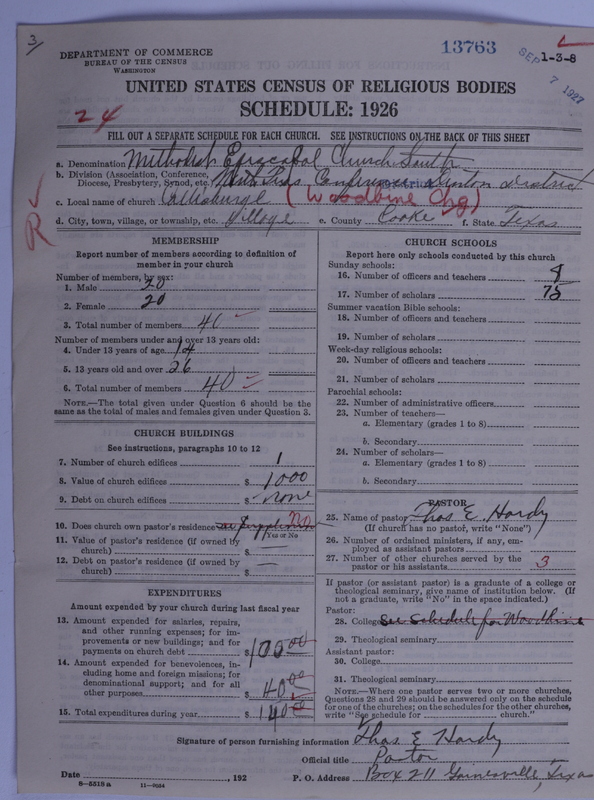 3/
DEPARTMENT OF COMMERCE
BUREAU OF THE CENSUS
WASHINGTON
13763
1-3-8
SEP 7 1927
UNITED STATES CENSUS OF RELIGIOUS BODIES
SCHEDULE: 1926
24
FILL OUT A SEPARATE SCHEDULE FOR EACH CHURCH. SEE INSTRUCTIONS ON THE BACK OF THIS SHEET
a. Denomination Methodist Episcopal Church South
b. Division (Association, Conference,
Diocese, Presbytery, Synod, etc.) North Texas Conference Denton District
c. Local name of church (Woodbine Chg)
R
d. City, town, village, or township, etc. Village e. County Cooke f. State Texas
MEMBERSHIP
Report number of members according to definition of
member in your church
Number of members, by sex:
1. Male 20
2. Female 20
3. Total number of members 40
Number of members under and over 13 years old:
4. Under 13 years of age 14
5. 13 years old and over 26
6. Total number of members 40
NOTE.—The total given under Question 6 should be the
same as the total of males and females given under Question 3.
CHURCH BUILDINGS
See instructions, paragraphs 10 to 12
7. Number of church edifices 1
8. Value of church edifices $ 1000
9. Debt on church edifices $ none
10. Does church own pastor's residence No
Yes or No
11. Value of pastor's residence (if owned by
church) $ —
12. Debt on pastor's residence (if owned by
church) $ —
EXPENDITURES
Amount expended by your church during last fiscal year
13. Amount expended for salaries, repairs,
and other running expenses; for im-
provements or new buildings; and for
payments on church debt $ 100 00
14. Amount expended for benevolences, in-
cluding home and foreign missions; for
denominational support; and for all
other purposes $ 40 00
15. Total expenditures during year $ 140 00
CHURCH SCHOOLS
Report here only schools conducted by this church
Sunday schools:
16. Number of officers and teachers
17. Number of scholars 75
Summer vacation Bible schools:
18. Number of officers and teachers
19. Number of scholars
Week-day religious schools:
20. Number of officers and teachers
21. Number of scholars
Parochial schools:
22. Number of administrative officers
23. Number of teachers—
a. Elementary (grades 1 to 8)
b. Secondary
24. Number of scholars—
a. Elementary (grades 1 to 8)
b. Secondary
PASTOR
25. Name of pastor Thos E. Hardy
(If church has no pastor, write "None")
26. Number of ordained ministers, if any, em-
ployed as assistant pastors
27. Number of other churches served by the
pastor or his assistants 3
If pastor (or assistant pastor) is a graduate of a college or
theological seminary, give name of institution below. (If
not a graduate, write "No" in the space indicated.)
Pastor:
28. College See Schedule for Woodbine
29. Theological seminary
Assistant pastor:
30. College
31. Theological seminary
NOTE.—Where one pastor serves two or more churches,
Questions 28 and 29 should be answered only on the schedule
for one of the churches; on the schedules for the other churches,
write "See schedule for church."
Signature of person furnishing information Thos E Hardy
Official title Pastor
Date , 192 P. O. Address Box 211 Gainesville, Texas
8—5518a 11—9034